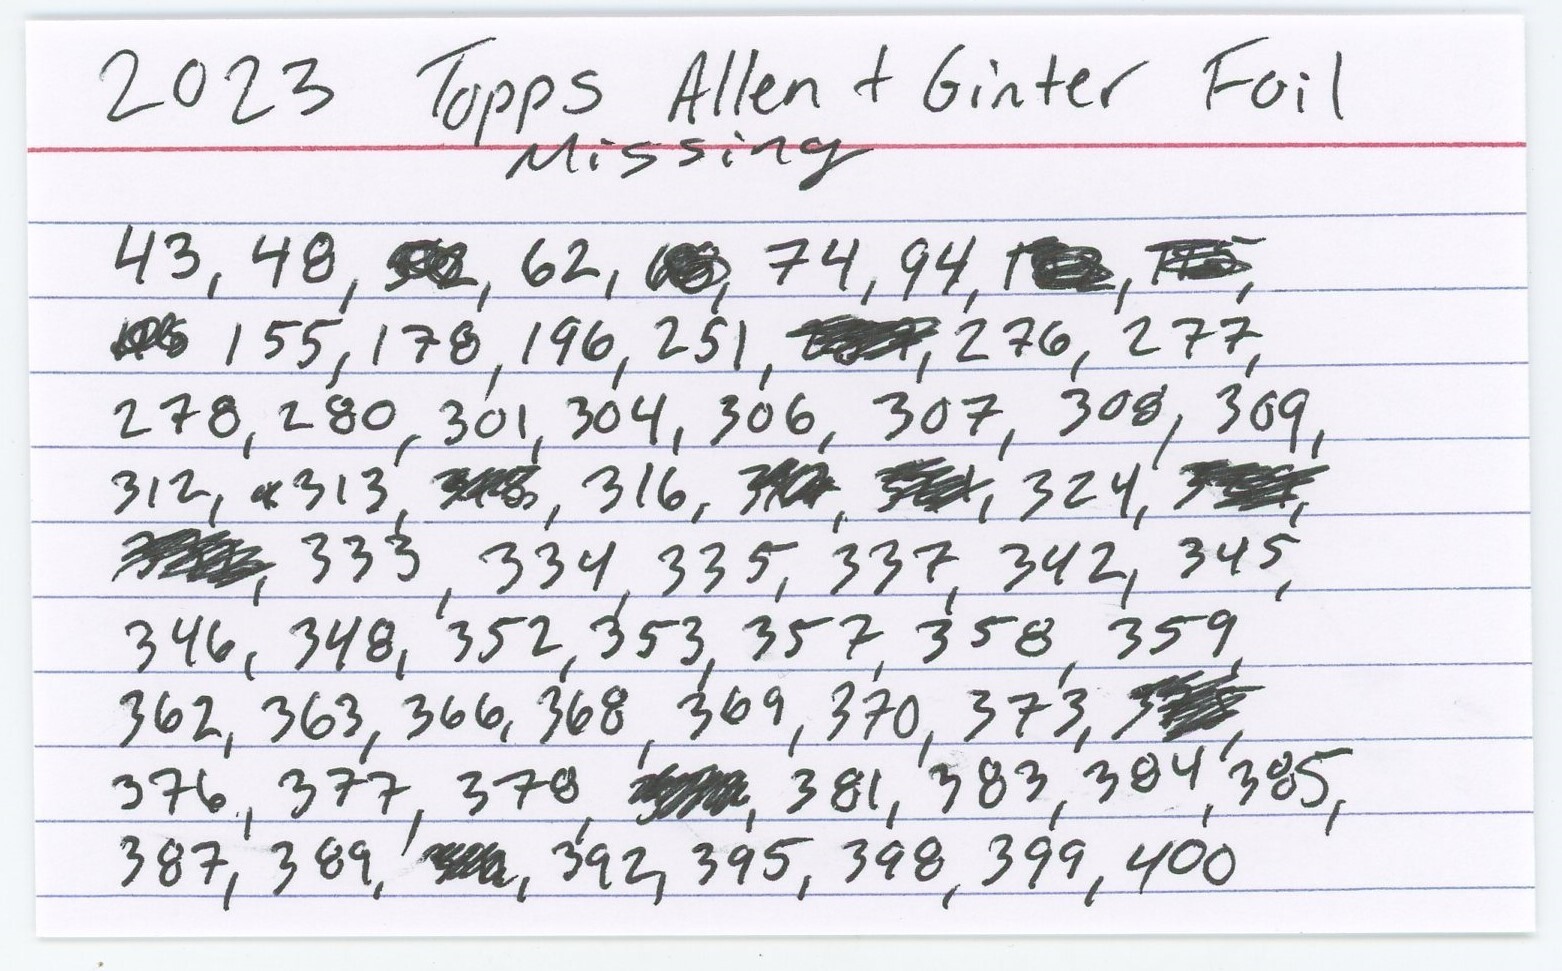 2023 Topps Allen + Ginter Foil
Missing
43, 48, 62, 74, 94,
155, 178, 196, 251, 276, 277,
278, 280, 301, 304, 306, 307, 308, 309,
312, 313, 316, 324,
333, 334, 335, 337, 342, 345,
346, 348, 352, 353, 357, 358, 359,
362, 363, 366, 368, 369, 370, 373,
376, 377, 378, 381, 383, 384, 385,
387, 389, 392, 395, 398, 399, 400